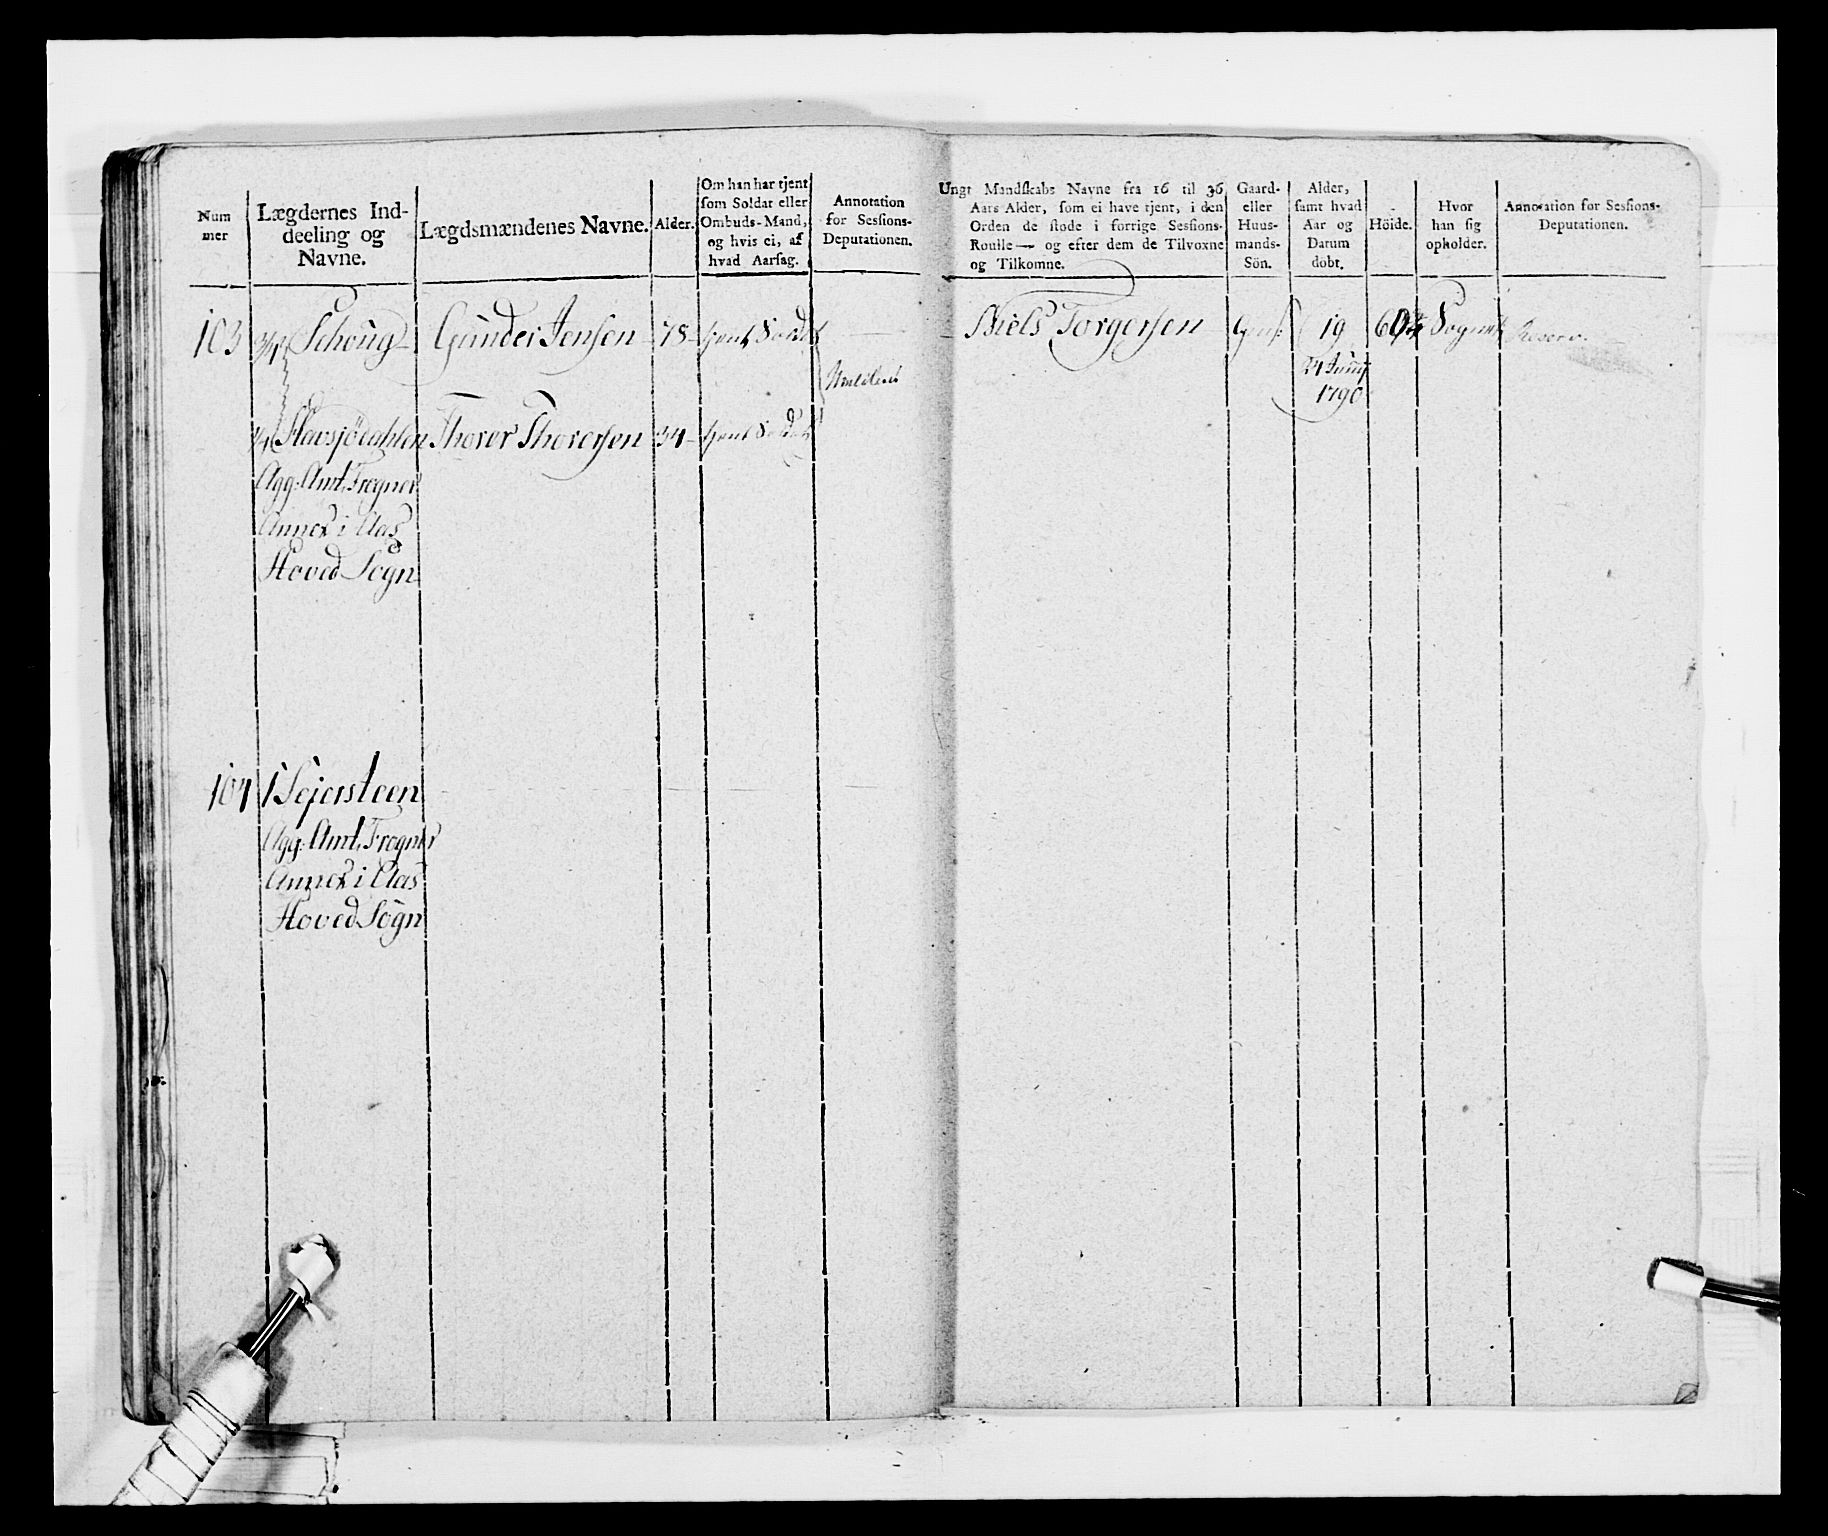 Num
mer
Lægdernes Ind-
deeling og
Navne.
Lægdsmændenes Navne.
Alder.
Om han har tjent
som Soldat eller
Ombuds-Mand,
og hvis ei, af
hvad Aarsag.
Annotation
for Sessions-
Deputationen.
103 3/4 Schoug Gunder Jensen 78
1/4 Thorer Thorersen 34
Agg: Amt, Frogner
Annex i Aas
Hoved Sogn
104 1 Sejersteen
Agg: Amt, Frogner
Annex i Aas
Hoved Sogn
Ungt Mandskabs Navne fra 16 til 36
Aars Alder, som ei have tjent, i den
Orden de stode i forrige Sessions-
Roulle — og efter dem de Tilvoxne
og Tilkomne.
Gaard-
eller
Huus-
mands-
Sön.
Alder,
samt hvad
Aar og
Datum
döbt.
Höide.
Hvor
han sig
opholder.
Annotation for Sessions-
Deputationen.
Niels Torgersen 19 Sognet
1790